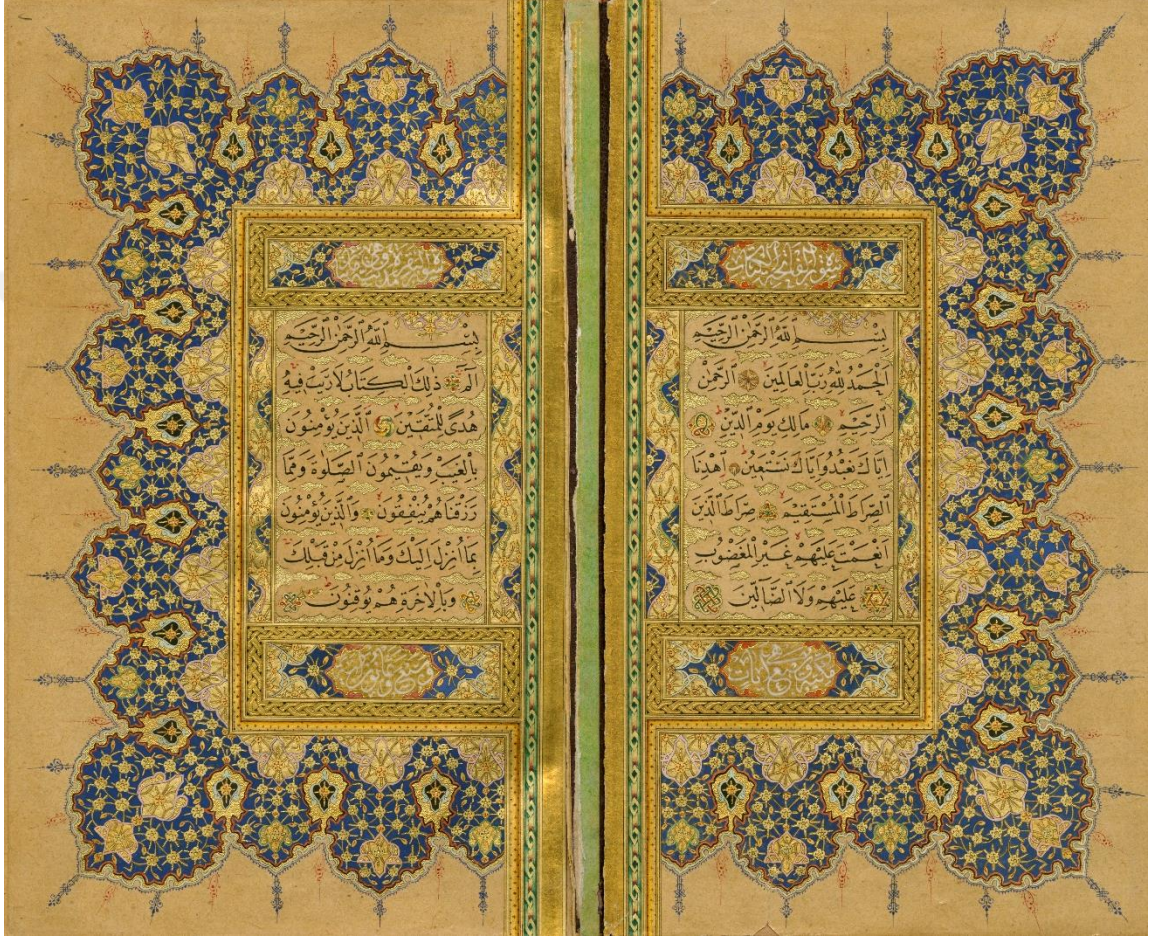 سورة الفاتحة الكتاب
بِسْمِ اللّٰهِ الرَّحْمٰنِ الرَّحِيمِ
اَلْحَمْدُ لِلّٰهِ رَبِّ الْعَالَمِينَ الرَّحْمٰنِ
الرَّحِيمِ مَالِكِ يَوْمِ الدِّينِ
اِيَّاكَ نَعْبُدُ وَاِيَّاكَ نَسْتَعِينُ اِهْدِنَا
الصِّرَاطَ الْمُسْتَقِيمَ صِرَاطَ الَّذِينَ
اَنْعَمْتَ عَلَيْهِمْ غَيْرِ الْمَغْضُوبِ
عَلَيْهِمْ وَلَا الضَّالِّينَ
سورة البقرة
بِسْمِ اللّٰهِ الرَّحْمٰنِ الرَّحِيمِ
الٓمٓ ذٰلِكَ الْكِتَابُ لَا رَيْبَ فِيهِ
هُدًى لِلْمُتَّقِينَ الَّذِينَ يُؤْمِنُونَ
بِالْغَيْبِ وَيُقِيمُونَ الصَّلٰوةَ وَمِمَّا
رَزَقْنَاهُمْ يُنْفِقُونَ وَالَّذِينَ يُؤْمِنُونَ
بِمَا اُنْزِلَ اِلَيْكَ وَمَا اُنْزِلَ مِنْ قَبْلِكَ
وَبِالْاٰخِرَةِ هُمْ يُوقِنُونَ